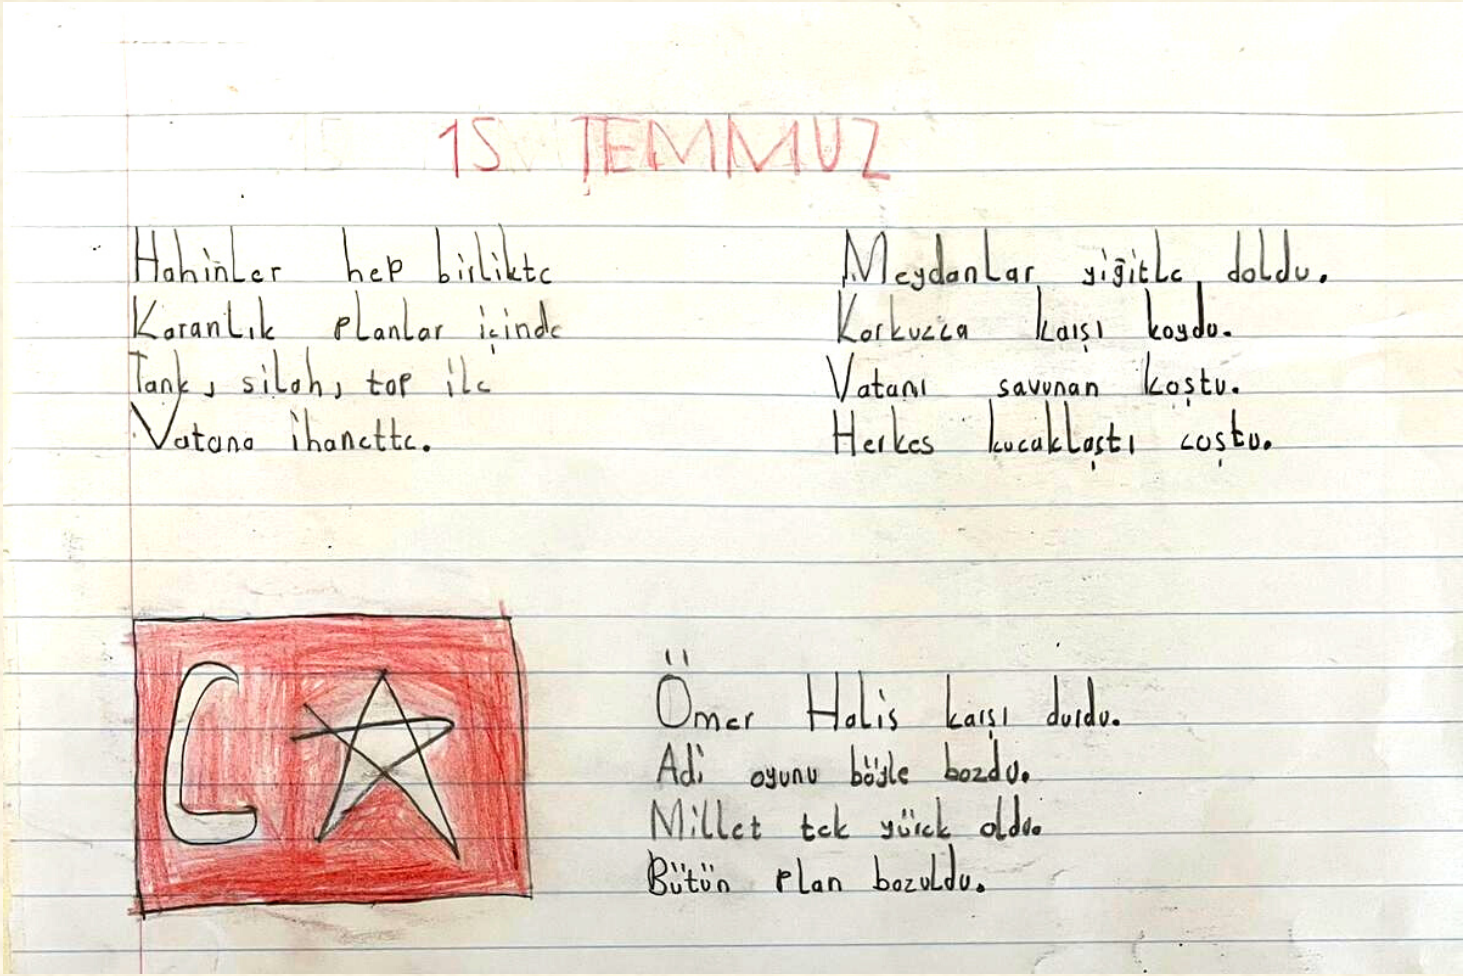 15 TEMMUZ
Hahinler hep birlikte
Karanlık planlar içinde
Tank, silah, top ile
Vatana ihanette.
Meydanlar yiğitle doldu.
Korkuzca karşı koydu.
Vatanı savunan koştu.
Herkes kucaklaştı coştu.
Ömer Halis karşı durdu.
Adi oyunu böyle bozdu.
Millet tek yürek oldu.
Bütün plan bozuldu.